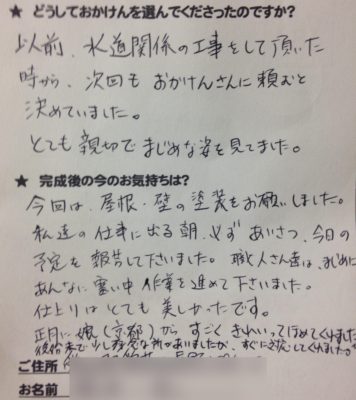 ★ どうしておかけんを選んでくださったのですか?
以前、水道関係の工事をして頂いた
時から、次回も おかけんさんに頼むと
決めていました。
とても 親切で まじめな姿を 見てました。
★ 完成後の今のお気持ちは?
今回は、屋根・壁の塗装をお願いしました。
私達の仕事に出る朝、必ず あいさつ、今日の
予定を 報告して下さいました。職人さん達は、まじめに
あんなに 寒い中 作業を進めて下さいました。
仕上りは とても 美しかったです。
正月に 娘(京都)から すごく きれいってほめてくれました
少し 所がありましたが、すぐに対応してくれました。
ご住所
お名前